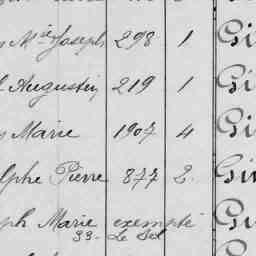 Mie Joseph 298 1 Gi
Augustin 219 1 Gi
Marie 1907 4 Gi
lphe Pierre 877 2 Gi
ph Marie exempté G
33. Le Sel G